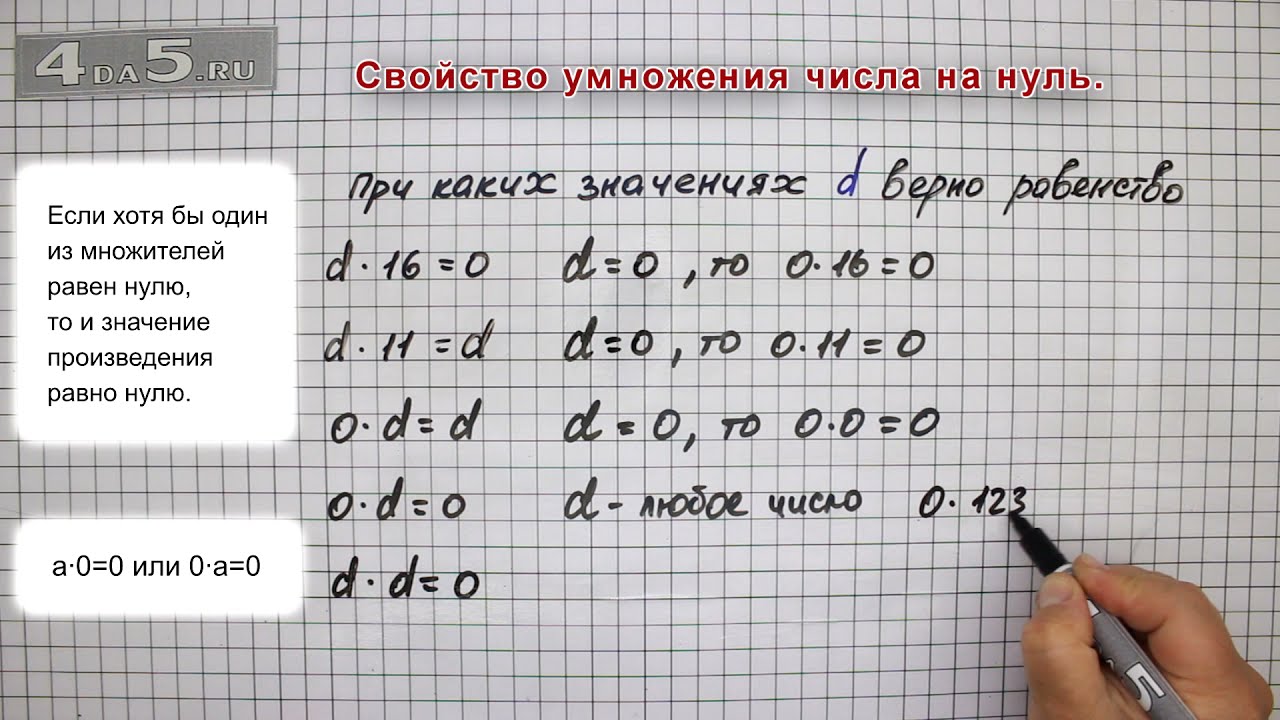 4DA5.RU
Свойство умножения числа на нуль.
При каких значениях d верно равенство
Если хотя бы один
из множителей
равен нулю,
то и значение
произведения
равно нулю.
d · 16 = 0 d = 0 , то 0 · 16 = 0
d · 11 = d d = 0 , то 0 · 11 = 0
0 · d = d d = 0, то 0 · 0 = 0
0 · d = 0 d - любое число 0 · 123
a·0=0 или 0·a=0
d · d = 0
5